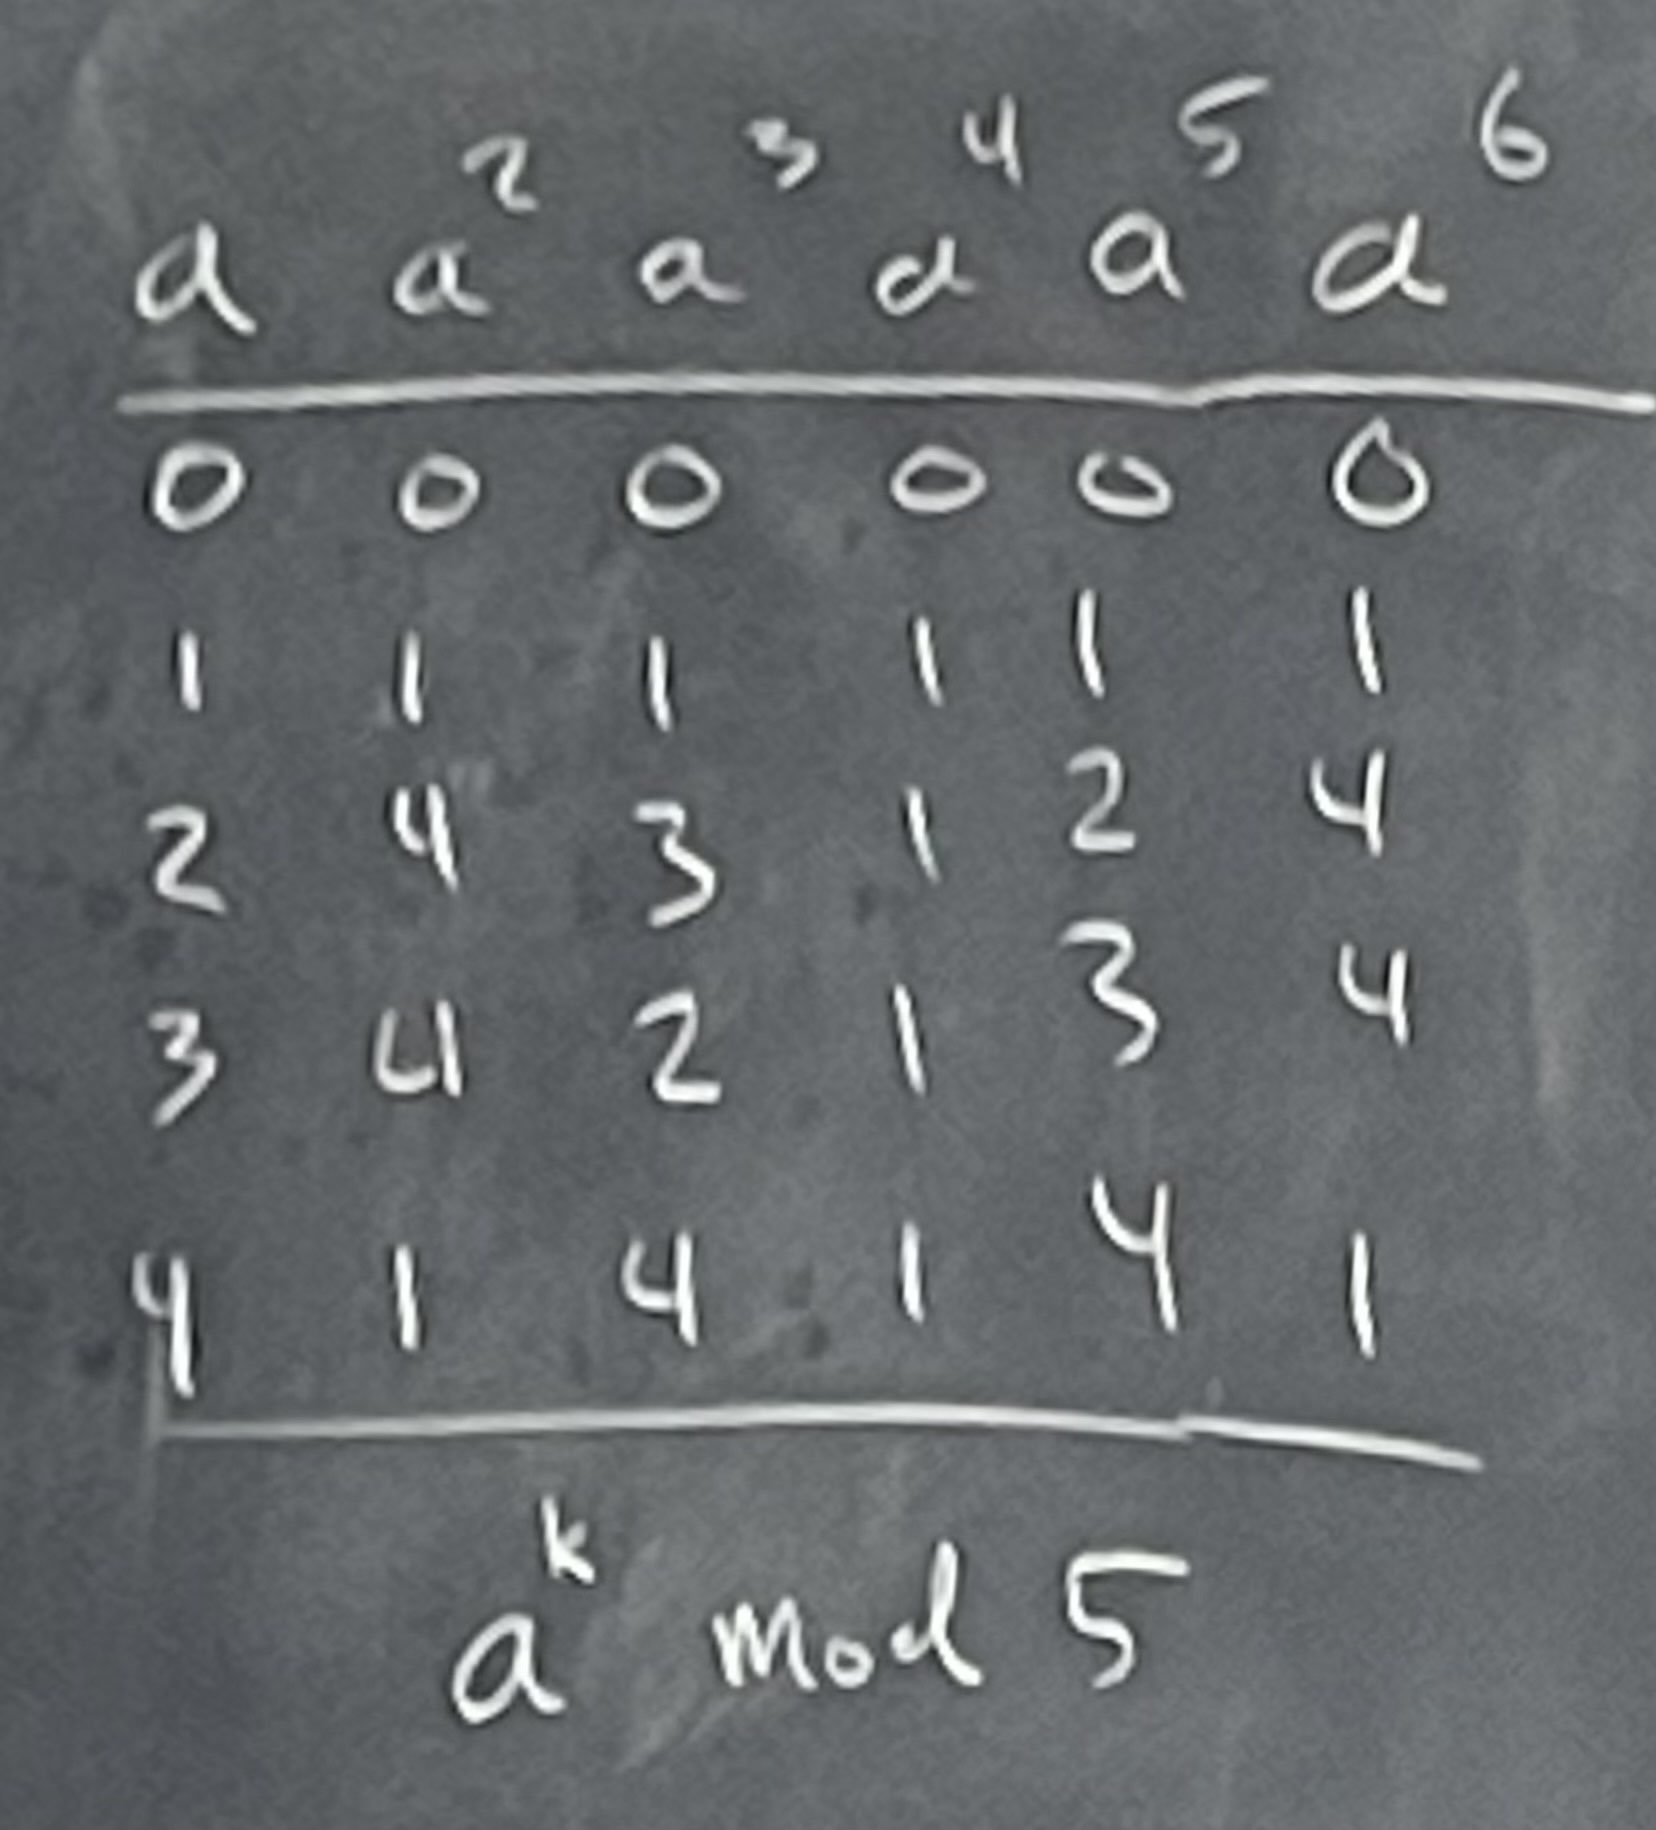 a a² a³ a⁴ a⁵ a⁶
0 0 0 0 0 0
1 1 1 1 1 1
2 4 3 1 2 4
3 4 2 1 3 4
4 1 4 1 4 1
aᵏ mod 5